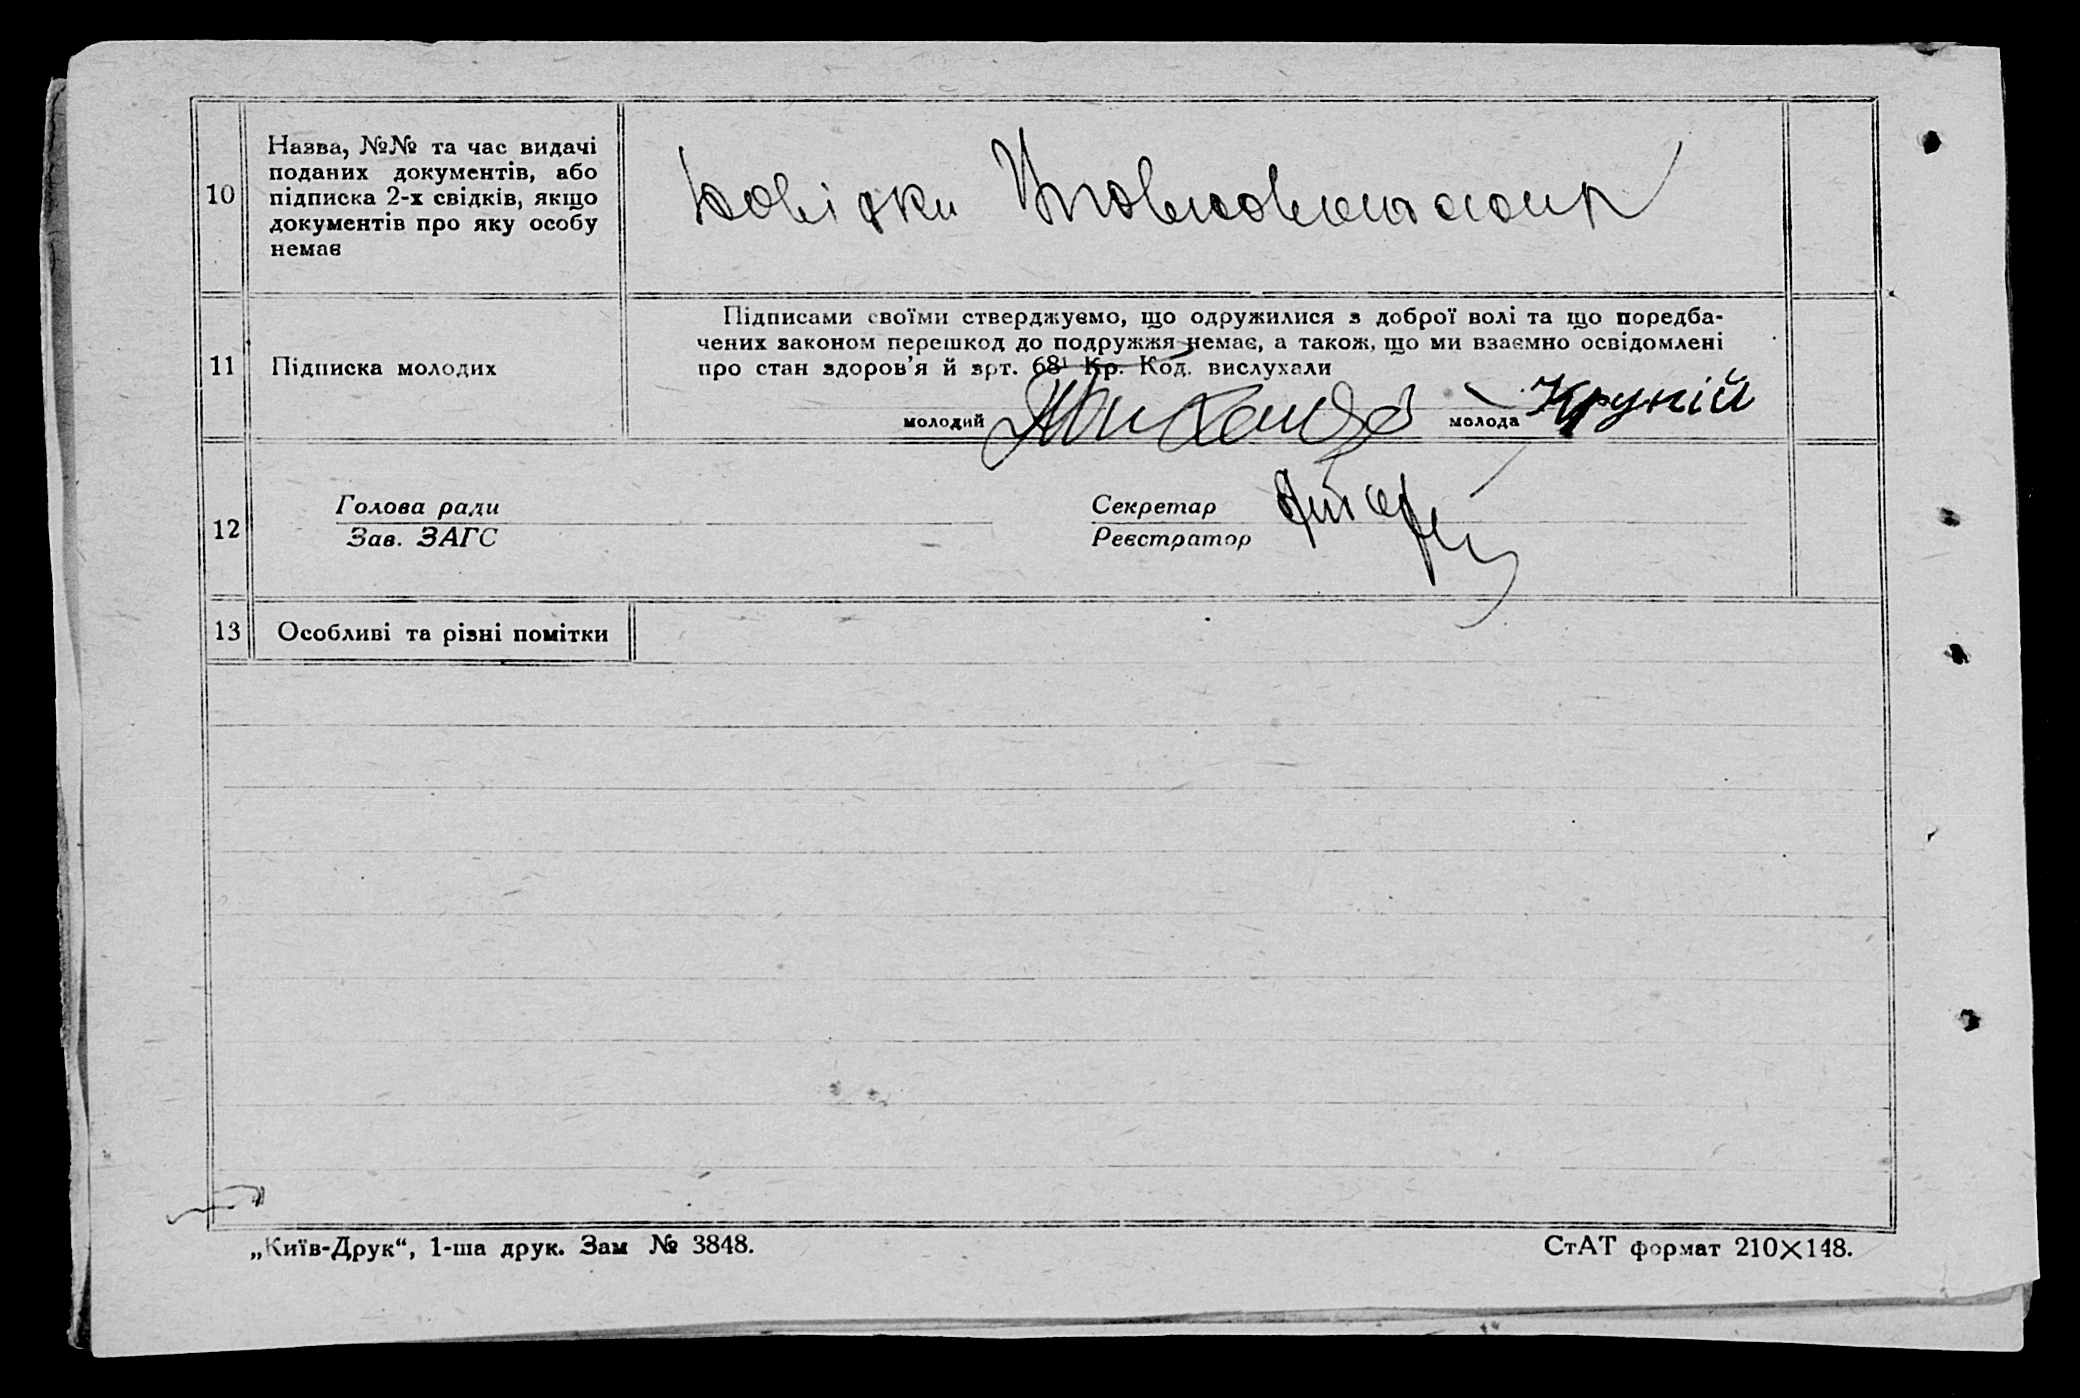 10
Назва, №№ та час видачі
поданих документів, або
підписка 2-х свідків, якщо
документів про яку особу
немає
Довідки
11
Підписка молодих
Підписами своїми стверджуємо, що одружилися з доброї волі та що поредба-
чених законом перешкод до подружжя немає, а також, що ми взаємно освідомлені
про стан здоров'я й арт. 68¹ Кр. Код. вислухали
молодий
молода
12
Голова ради
Зав. ЗАГС
Секретар
Реєстратор
13
Особливі та різні помітки
„Київ-Друк“, 1-ша друк. Зам № 3848.
СтАТ формат 210×148.